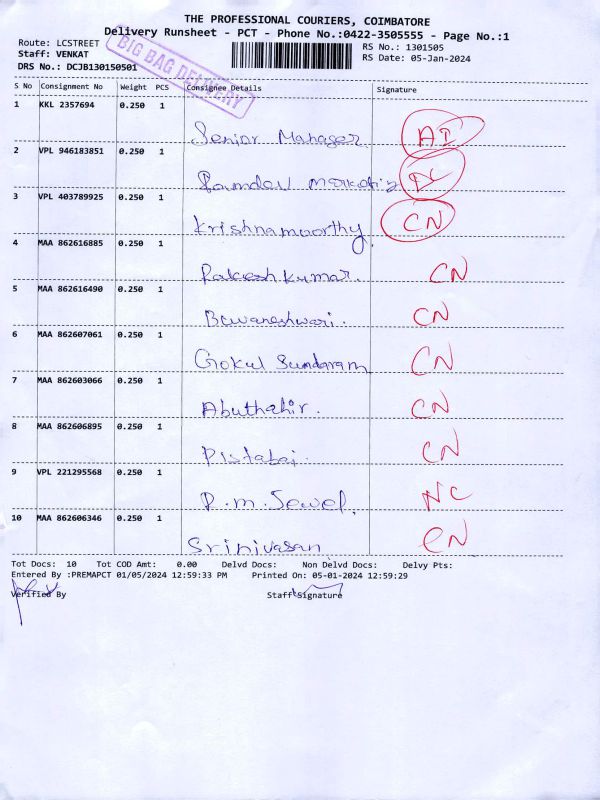 THE PROFESSIONAL COURIERS, COIMBATORE
Delivery Runsheet - PCT - Phone No.:0422-3505555 - Page No.:1
Route: LCSTREET RS No.: 1301505
Staff: VENKAT RS Date: 05-Jan-2024
DRS No.: DCJB130150501
BIG BAG DELIVERY
S No Consignment No Weight PCS Consignee Details Signature
1 KKL 2357694 0.250 1
Senior Manager
2 VPL 946183851 0.250 1
3 VPL 403789925 0.250 1
Krishnamoorthy. CN
4 MAA 862616885 0.250 1
Rakesh kumar. CN
5 MAA 862616490 0.250 1
Bcwaneshwari. CN
6 MAA 862607061 0.250 1
Gokul Sundaram CN
7 MAA 862603066 0.250 1
Abuthahir. CN
8 MAA 862606895 0.250 1
Pistabai. CN
9 VPL 221295568 0.250 1
P.m.Jewel. NC
10 MAA 862606346 0.250 1
Srinivasan CN
Tot Docs: 10 Tot COD Amt: 0.00 Delvd Docs: Non Delvd Docs: Delvy Pts:
Entered By :PREMAPCT 01/05/2024 12:59:33 PM Printed On: 05-01-2024 12:59:29
Verified By Staff Signature